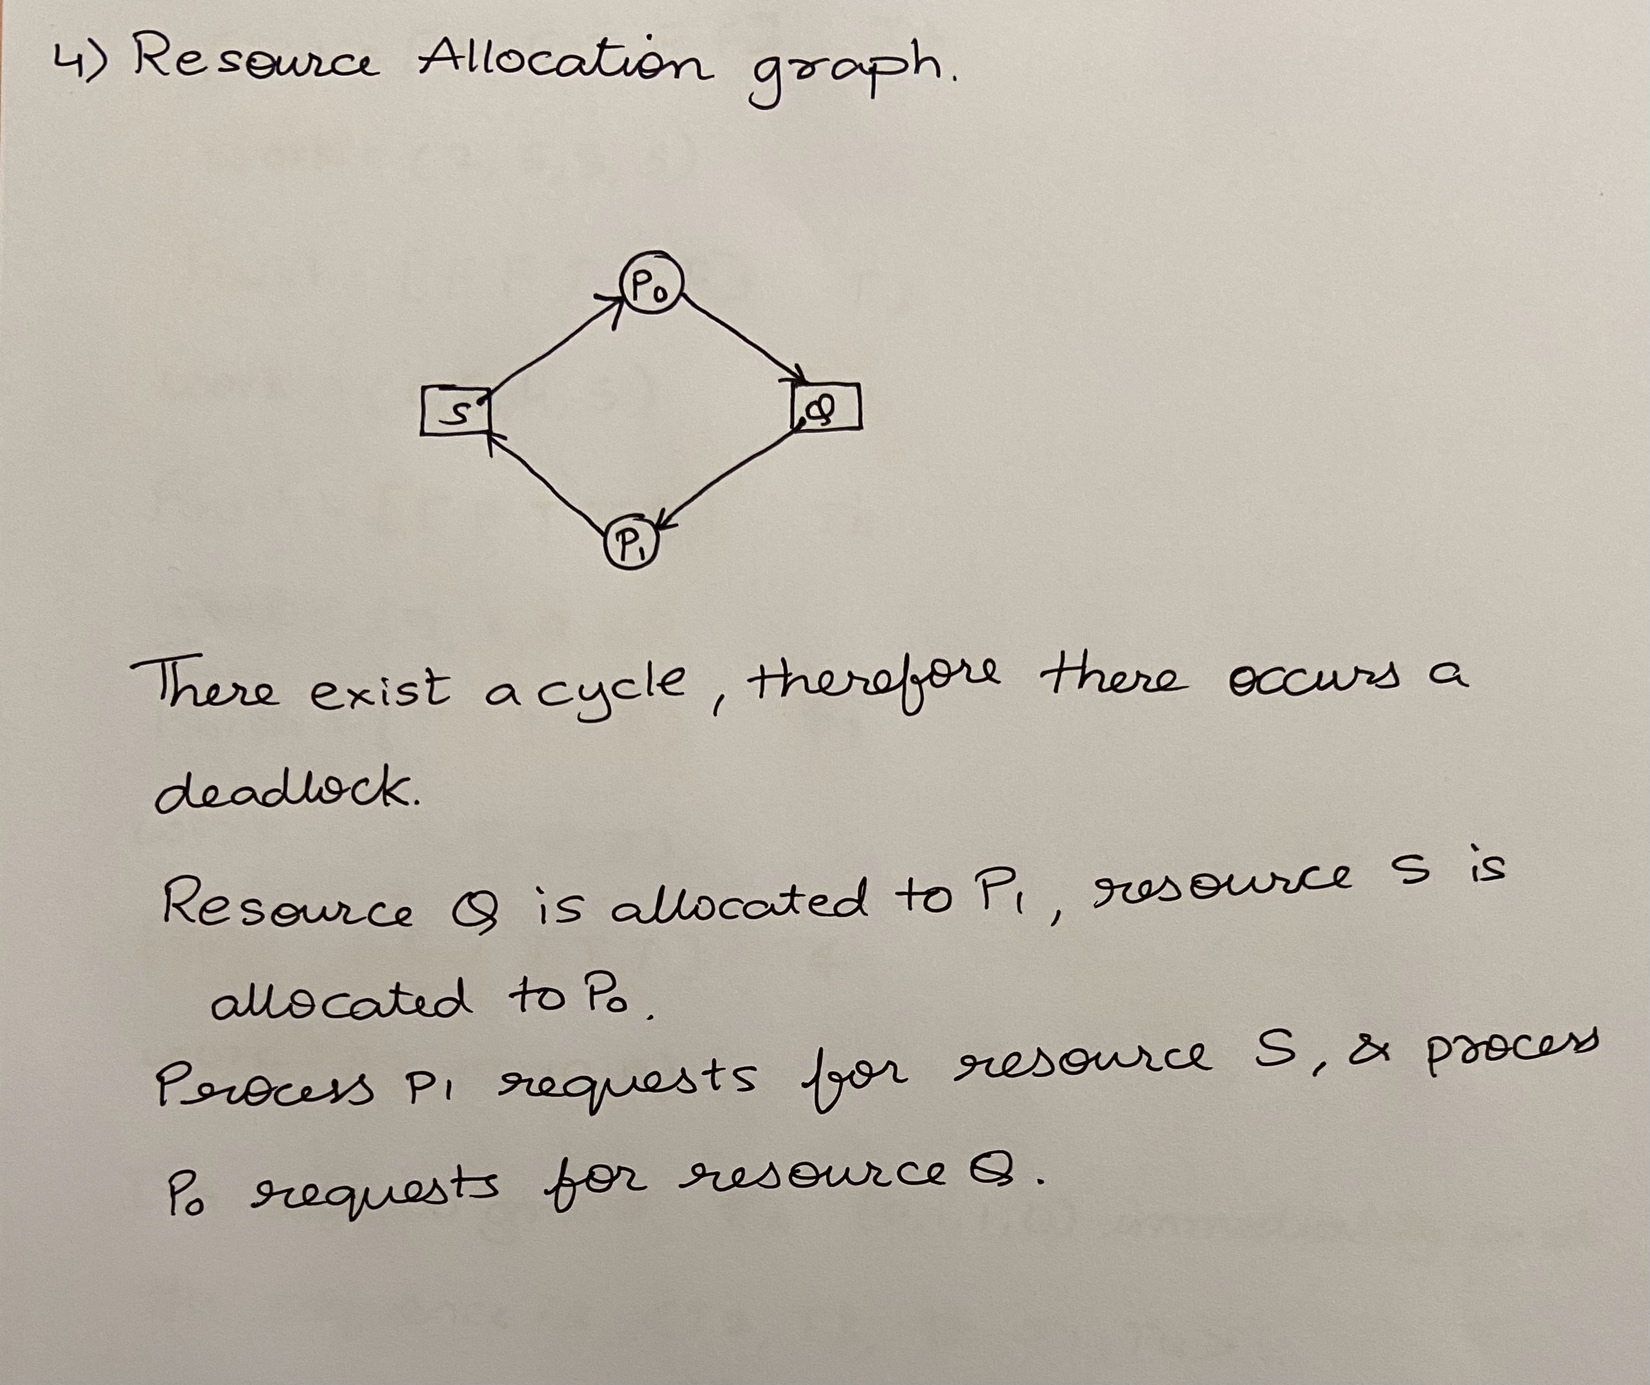 4) Resource Allocation graph.
P0
S
Q
P1
There exist a cycle, therefore there occurs a
deadlock.
Resource Q is allocated to P1, resource S is
allocated to P0.
Process P1 requests for resource S, & process
P0 requests for resource Q.